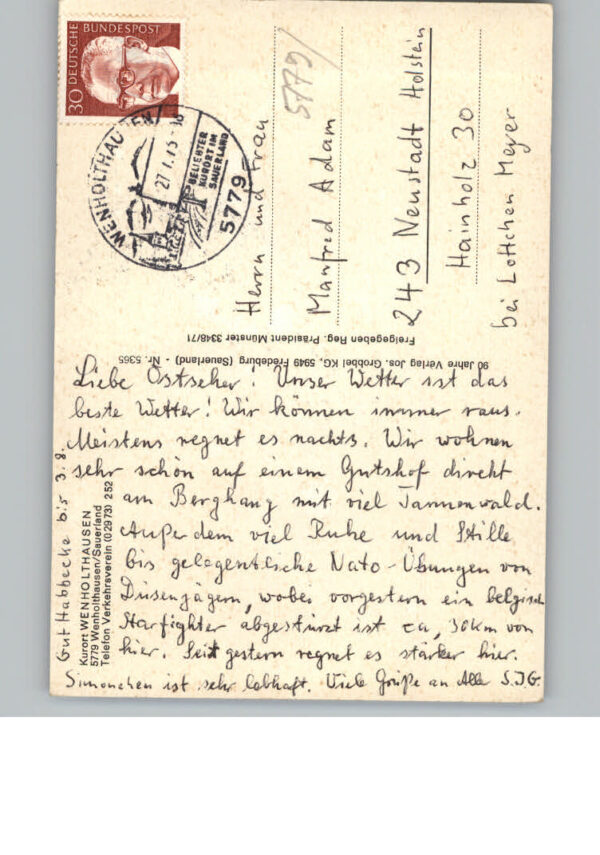 30 DEUTSCHE BUNDESPOST
WENHOLTHAUSEN
27.7.73-16
BELIEBTER
KURORT IM
SAUERLAND
5779
5779/
Herrn und Frau
Manfred Adam
243 Neustadt Holstein
Hainholz 30
bei Lottchen Meyer
Freigegeben Reg. Präsident Münster 3348/71
90 Jahre Verlag Jos. Grobbel KG, 5949 Fredeburg (Sauerland) - Nr. 5365
Liebe Ostseher! Unser Wetter ist das
beste Wetter! Wir können immer raus.
Meistens regnet es nachts. Wir wohnen
sehr schön auf einem Gutshof direkt
am Berghang mit viel Tannenwald.
Außerdem viel Ruhe und Stille
bis gelegentliche Nato-Übungen von
Düsenjägern, wobei vorgestern ein belgisch
Starfighter abgestürzt ist ca, 30km von
hier. Seit gestern regnet es stärker hier.
Simonchen ist sehr lebhaft. Viele Grüße an Alle S.J.G.
Gut Habbecke bis 3.8.
Kurort WENHOLTHAUSEN
5779 Wenholthausen/Sauerland
Telefon Verkehrsverein (02973) 252